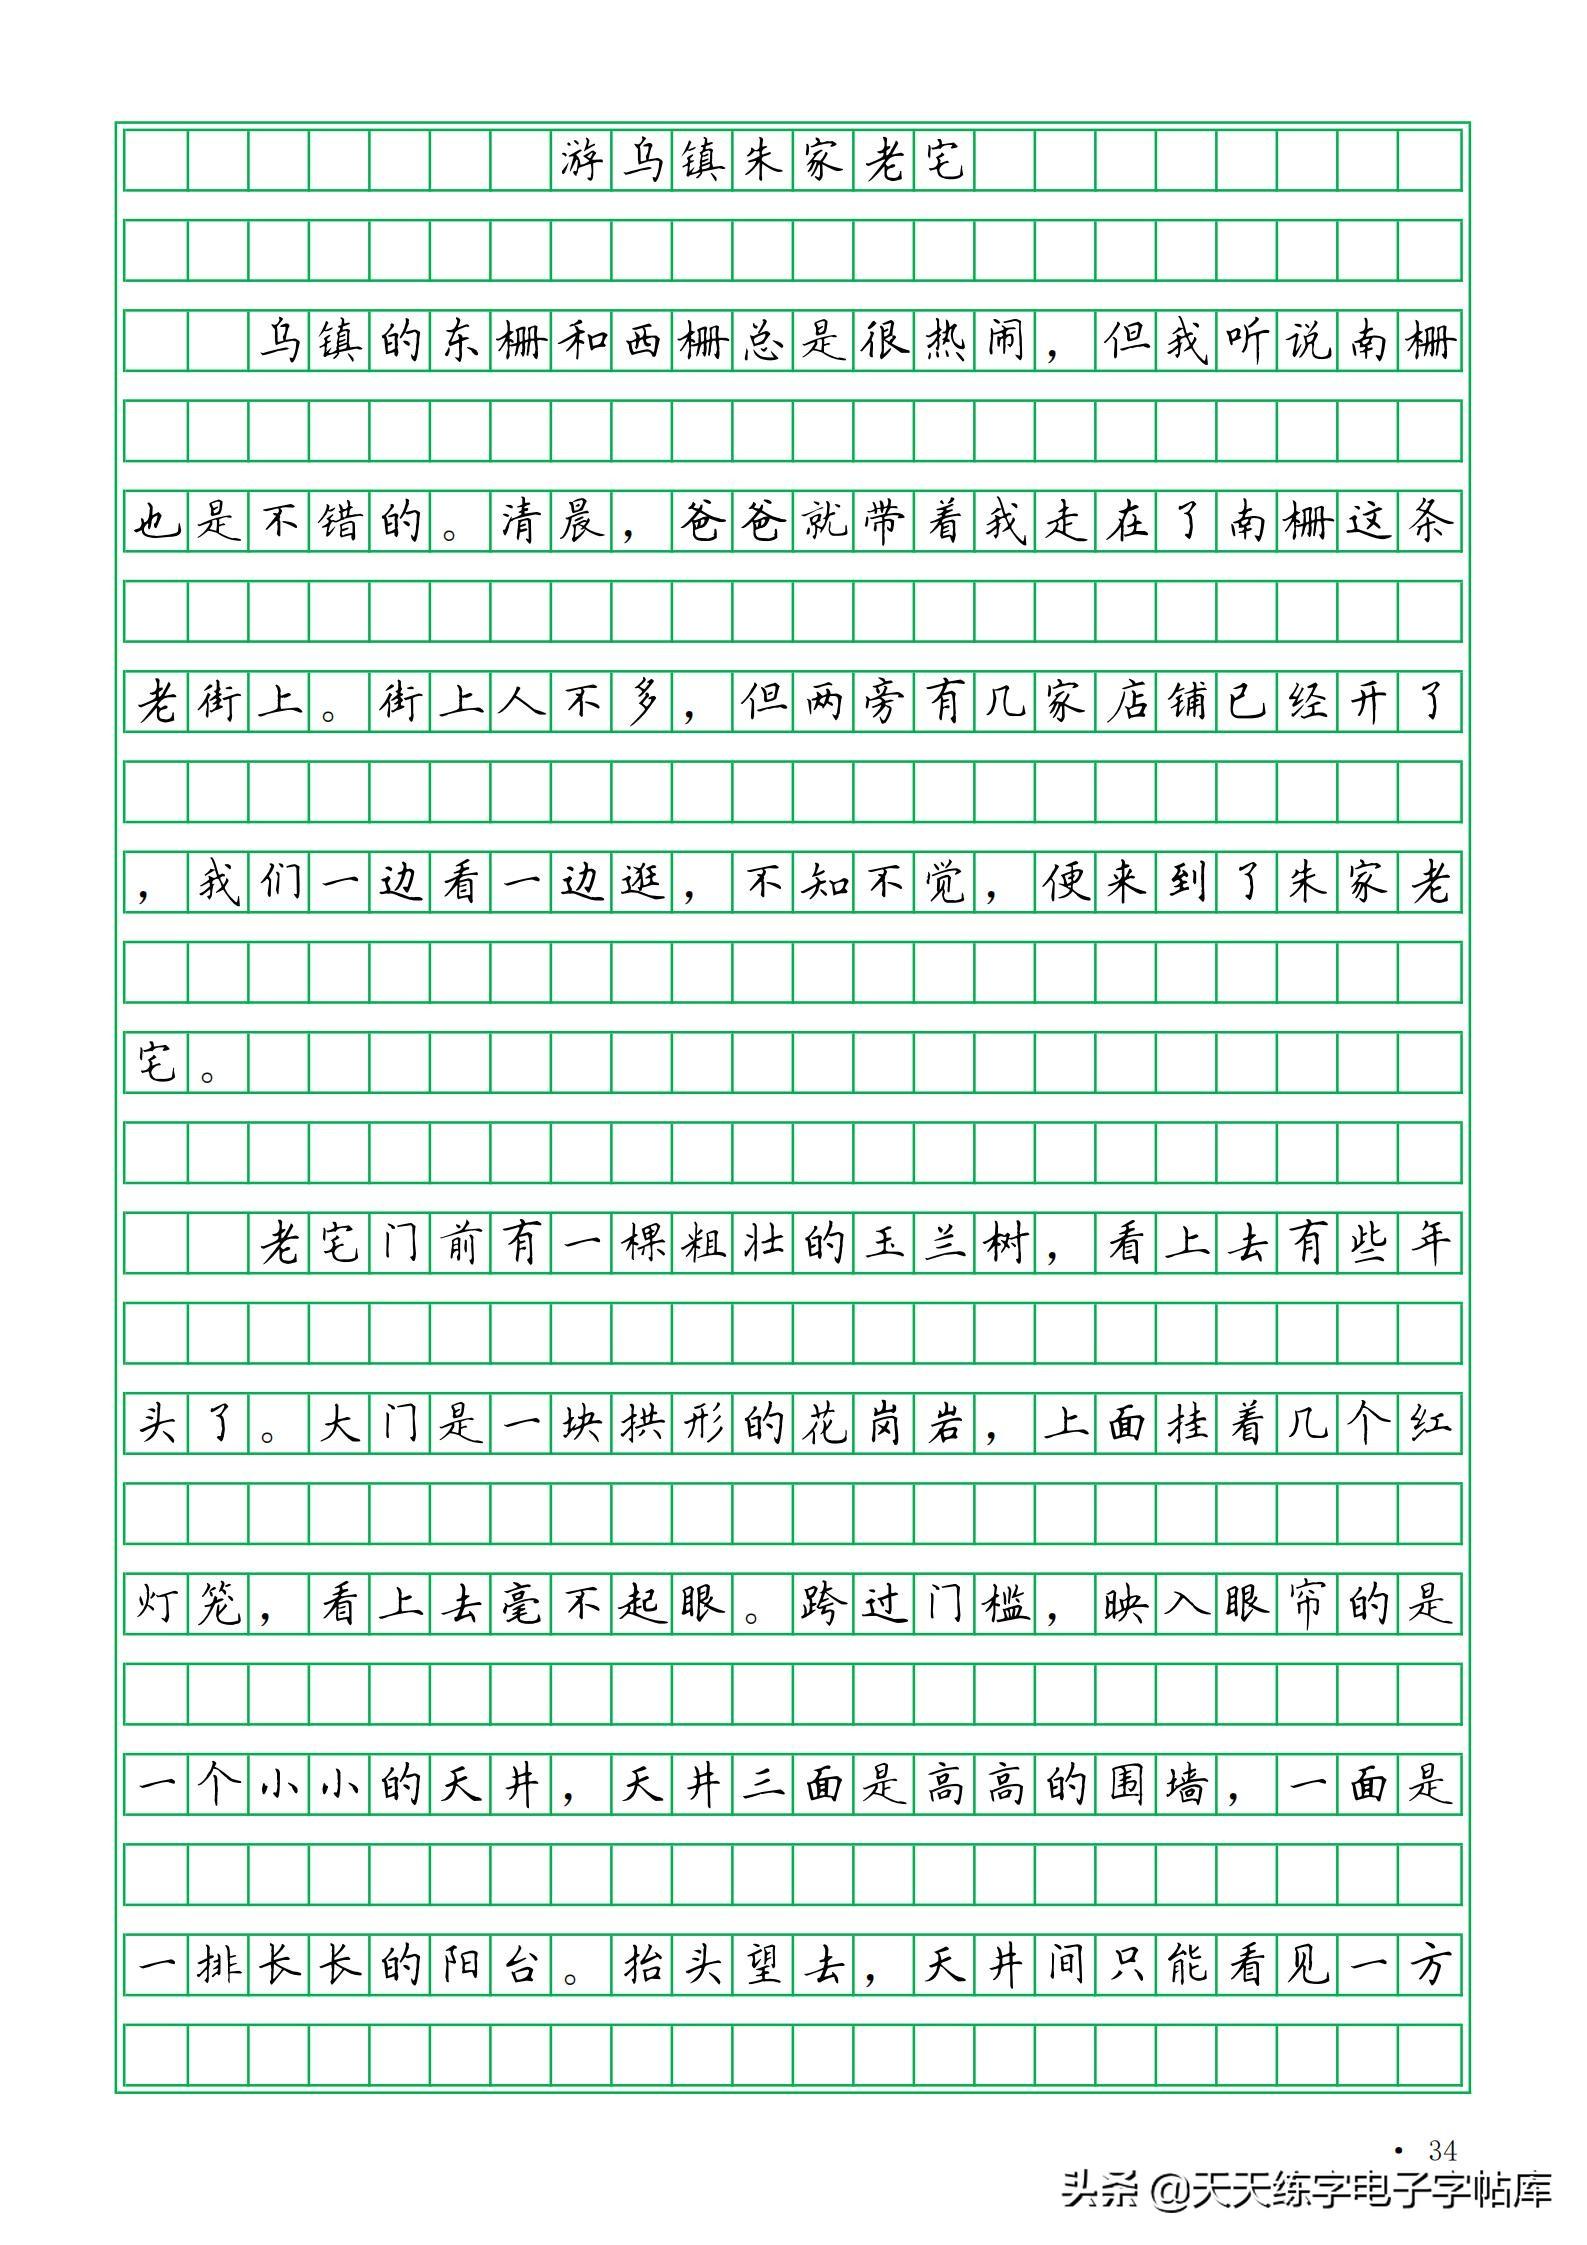 游乌镇朱家老宅
乌镇的东栅和西栅总是很热闹，但我听说南栅
也是不错的。清晨，爸爸就带着我走在了南栅这条
老街上。街上人不多，但两旁有几家店铺已经开了
，我们一边看一边逛，不知不觉，便来到了朱家老
宅。
老宅门前有一棵粗壮的玉兰树，看上去有些年
头了。大门是一块拱形的花岗岩，上面挂着几个红
灯笼，看上去毫不起眼。跨过门槛，映入眼帘的是
一个小小的天井，天井三面是高高的围墙，一面是
一排长长的阳台。抬头望去，天井间只能看见一方
· 34
头条 @天天练字电子字帖库